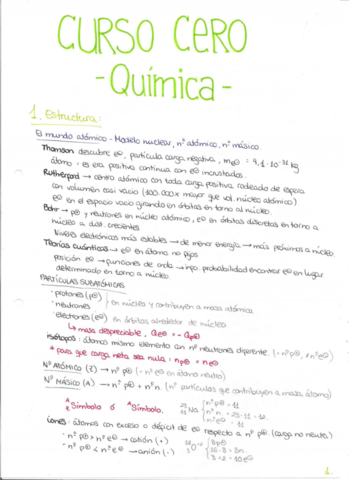 CURSO CERO
-Química-
1. Estructura:
El mundo atómico - Modelo nuclear, nº atómico, nº másico.
Thomson descubre e⊖, partícula carga negativa, me⊖ = 9,1·10⁻³¹ kg
átomo = es era positiva continua con e⊖ incrustados.
Rutherford → centro atómico con toda carga positiva rodeado de espera
con volumen casi vacío (100.000x mayor que vol. núcleo atómico)
e⊖ en el espacio vacío girando en órbitas en torno al núcleo.
Bohr → p⊕ y neutrones en núcleo atómico, e⊖ en órbitas discretas en torno a
núcleo a dist. crecientes
Niveles electrónicos más estables → de menor energía → más próximos a núcleo
Teorías cuánticas → e⊖ en átomo no fijos
posición e⊖ → funciones de onda → info. probabilidad encontrar e⊖ en lugar
determinado en torno a núcleo.
PARTÍCULAS SUBATÓMICAS
· protones (p⊕)
· neutrones
en núcleo y contribuyen a masa atómica
· electrones (e⊖) en órbitas alrededor de núcleo
↳ masa despreciable, qe⊖ = - qp⊕
isótopos: átomos mismo elemento con nº neutrones diferente. (= nº p⊕, ≠ nº e⊖)
* para que carga neta sea nula = np⊕ = ne⊖
Nº ATÓMICO (Z) → nº p⊕ (= nº e⊖ en átomo neutro)
Nº MÁSICO (A) → nº p⊕ + nº n. (nº partículas que contribuyen a masa átomo)
ᴬ_Z Símbolo ó ᴬ Símbolo. ²³₁₁ Na { nº p⊕ = 11
nº n = 23-11 = 12.
nº e⊖ = 11
iones: átomos con exceso o déficit de e⊖ respecto a nº p⊕ (carga no neutra)
· nº p⊕ > nº e⊖ → catión (+)
· nº p⊕ < nº e⊖ → anión (-)
¹⁶₈ O²⁻ { 8p⊕
16-8 = 8n.
8+2 = 10e⊖
1.